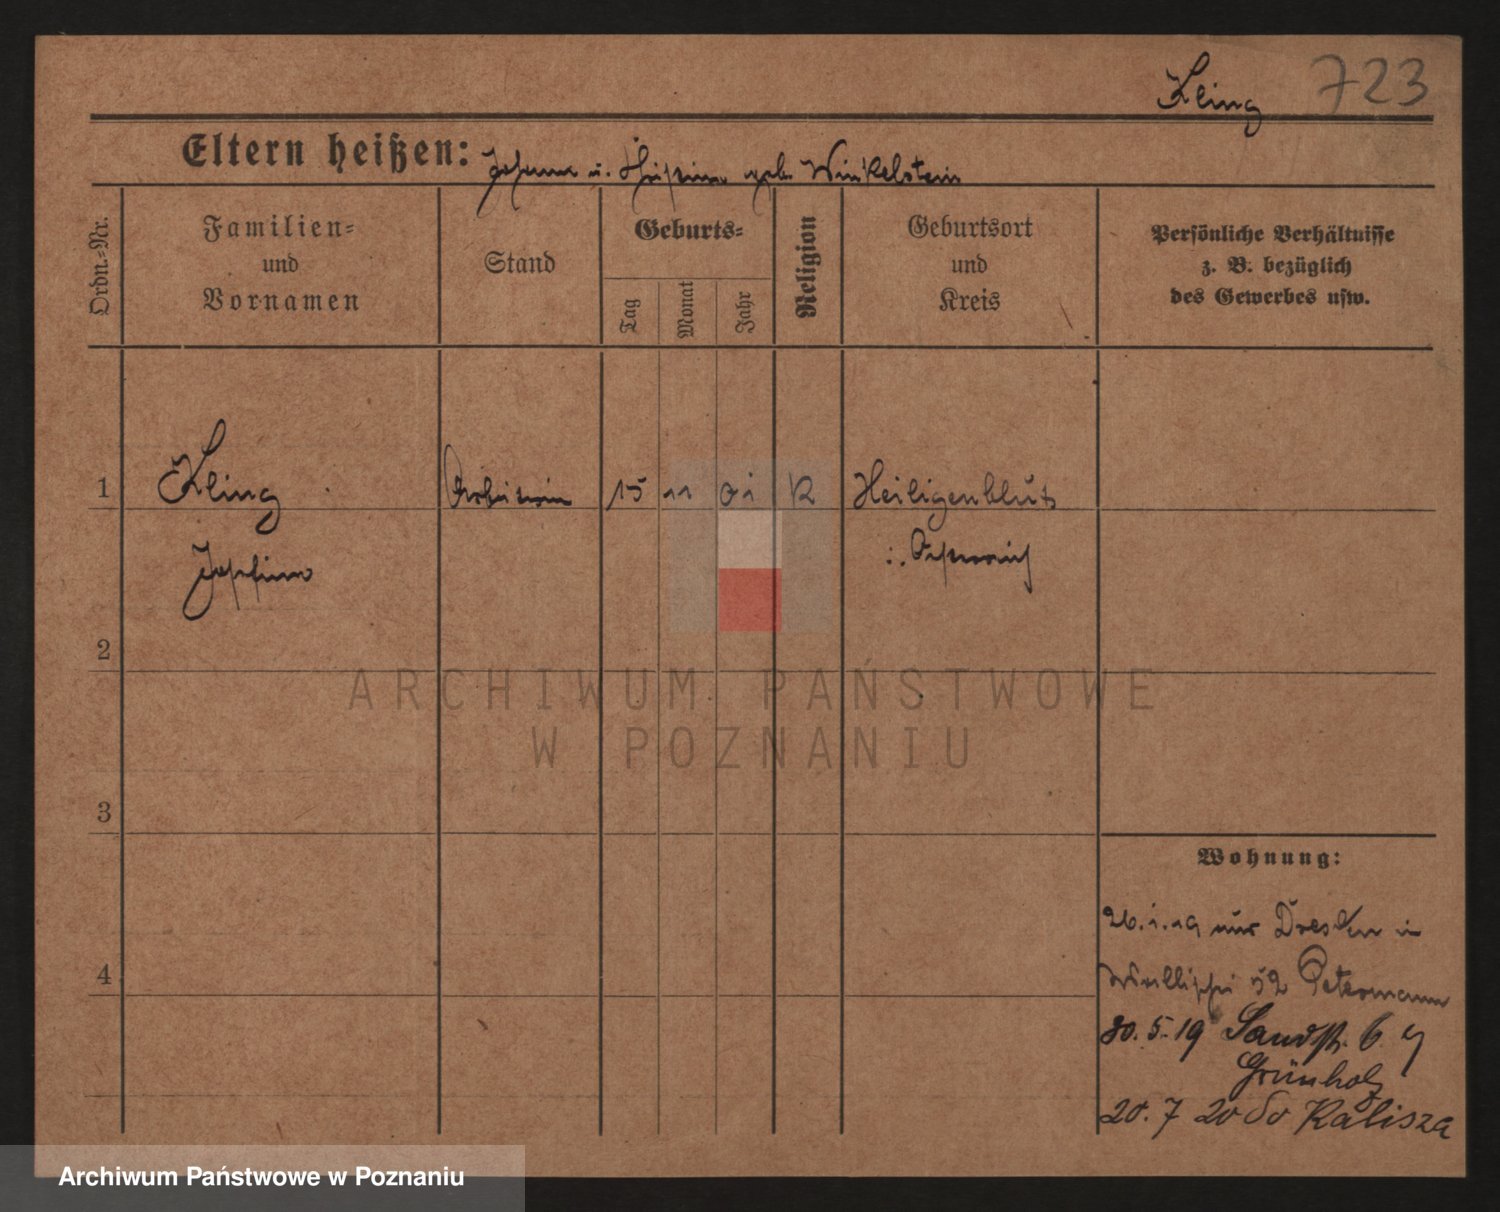 Kling 723
Eltern heißen: Johann u. geb. Winkelstein
Ordn.-Nr.
Familien-
und
Vornamen
Stand
Geburts-
Tag
Monat
Jahr
Religion
Geburtsort
und
Kreis
Persönliche Verhältnisse
z. B. bezüglich
des Gewerbes usw.
1 Kling Arbeiterin 15 11 01 K Heiligenblut
Josefine Österreich
2
3
4
Wohnung:
26.1.19 aus Dresden in
52 Petermann
30.5.19 Sandstr. 6
Grünholz
20.7 20 do Kalisza
ARCHIWUM PAŃSTWOWE
W POZNANIU
Archiwum Państwowe w Poznaniu